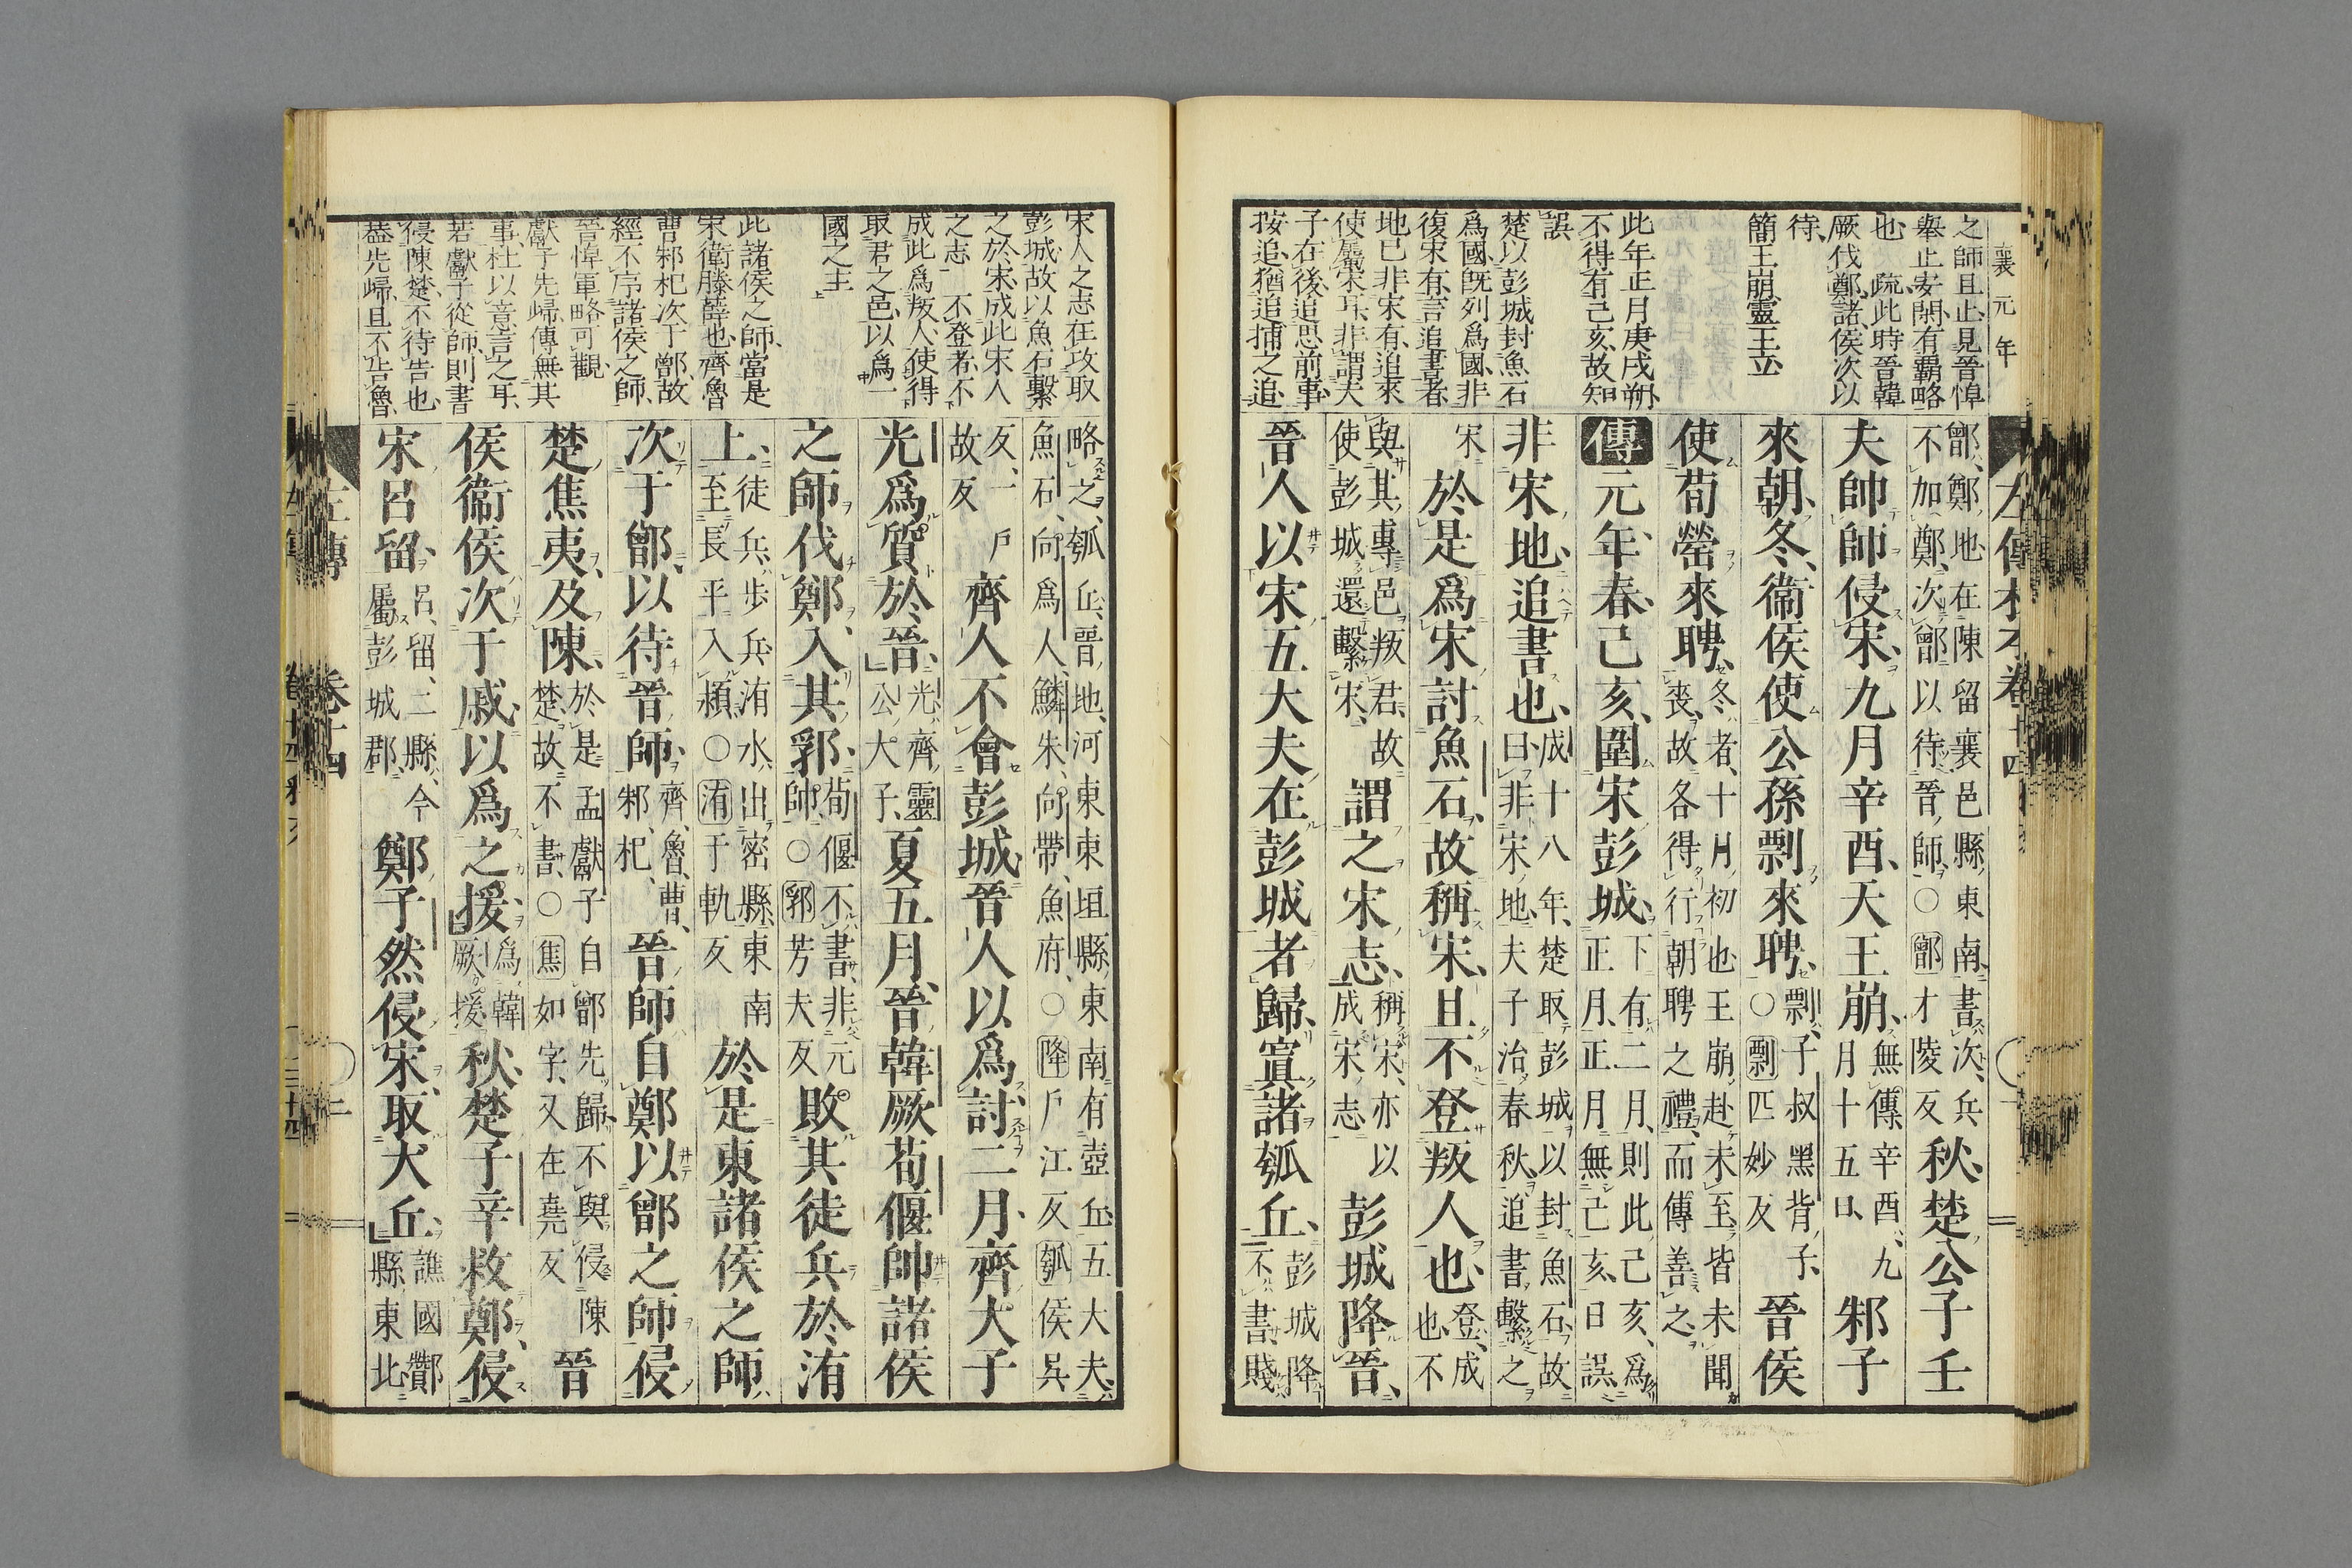 襄元年
之師且止見晉悼
舉止安閑有覇略
也　疏此時晉韓
厥伐鄭諸侯次以
待
簡王崩靈王立
此年正月庚戌朔
不得有己亥故知
誤
楚以彭城封魚石
爲國既列爲國非
復宋有言追書者
地已非宋有追來
使屬宋耳非謂夫
子在後追思前事
按追猶追捕之追
左傳校本卷十四
鄫鄭地在陳留襄邑縣東南書次兵
不加鄭次鄫以待晉師○鄫才陵反
秋楚公子壬
夫帥師侵宋九月辛酉天王崩
無傳辛酉九
月十五日
邾子
來朝冬衞侯使公孫剽來聘
剽子叔黑背子
○剽匹妙反
晉侯
使荀罃來聘
冬者十月初也王崩赴未至皆未聞
喪故各得行朝聘之禮而傳善之
傳元年春己亥圍宋彭城
下有二月則此己亥爲
正月正月無己亥日誤
非宋地追書也
成十八年楚取彭城以封魚石故
曰非宋地夫子治春秋追書繫之
宋
於是爲宋討魚石故稱宋且不登叛人也
登成
也不
與其專邑叛君故
使彭城還繫宋
謂之宋志
稱宋亦以
成宋志
彭城降晉
晉人以宋五大夫在彭城者歸寘諸瓠丘
彭城降
不書賤
宋人之志在攻取
彭城故以魚石繫
之於宋成此宋人
之志　不登者不
成此爲叛人使得
取君之邑以爲一
國之主
此諸侯之師當是
宋衛滕薛也齊魯
曹邾杞次于鄫故
經不序諸侯之師
晉悼軍略可觀
獻子先歸傳無其
事杜以意言之耳
若獻子從師則書
侵陳楚不待告也
葢先歸且不告魯
略之瓠丘晉地河東東垣縣東南有壺丘五大夫
魚石向爲人鱗朱向帶魚府○降戶江反瓠侯吳
反一戶
故反
齊人不會彭城晉人以爲討二月齊大子
光爲質於晉
光齊靈
公大子
夏五月晉韓厥荀偃帥諸侯
之師伐鄭入其郛
荀偃不書非元
帥○郛芳夫反
敗其徒兵於洧
上
徒兵步兵洧水出密縣東南
至長平入潁○洧于軌反
於是東諸侯之師
次于鄫以待晉師
齊魯曹
邾杞
晉師自鄭以鄫之師侵
楚焦夷及陳
於是孟獻子自鄫先歸不與侵陳
楚故不書○焦如字又在堯反
晉
侯衞侯次于戚以爲之援
爲韓
厥援
秋楚子辛救鄭侵
宋呂留
呂留二縣今
屬彭城郡
鄭子然侵宋取犬丘
譙國酇
縣東北
左傳　卷十四
二